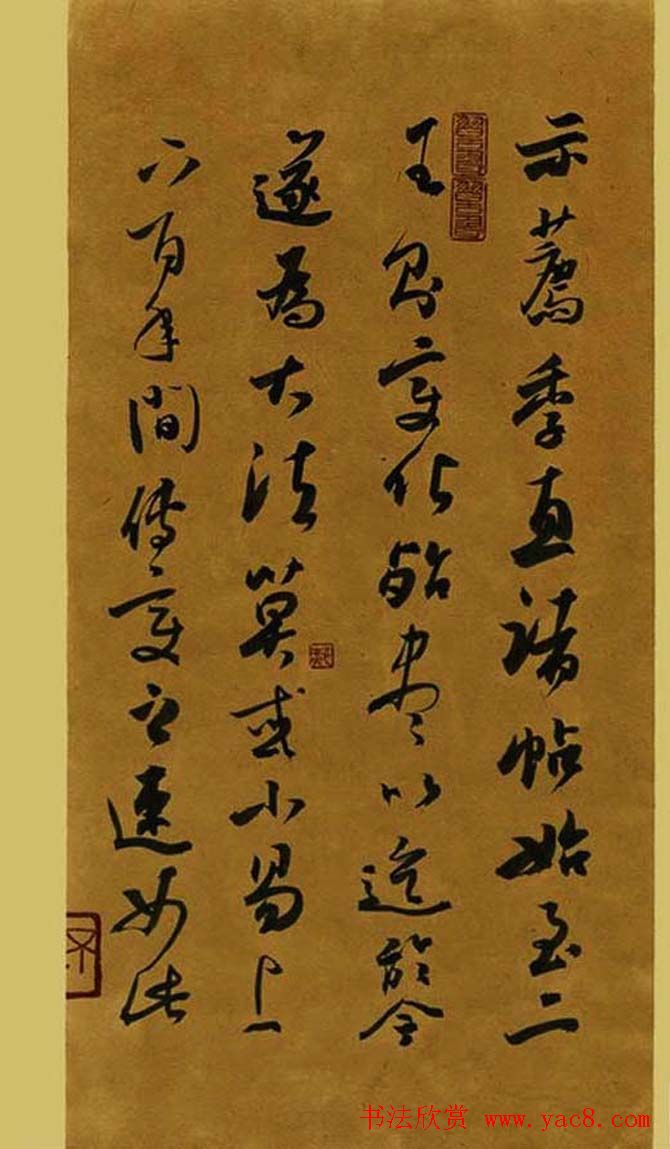 示薦季直諸帖始至二
王則變化殆盡以迄於今
遂為大法莫或小易上
下百年間傳變之速如此
书法欣赏 www.yac8.com